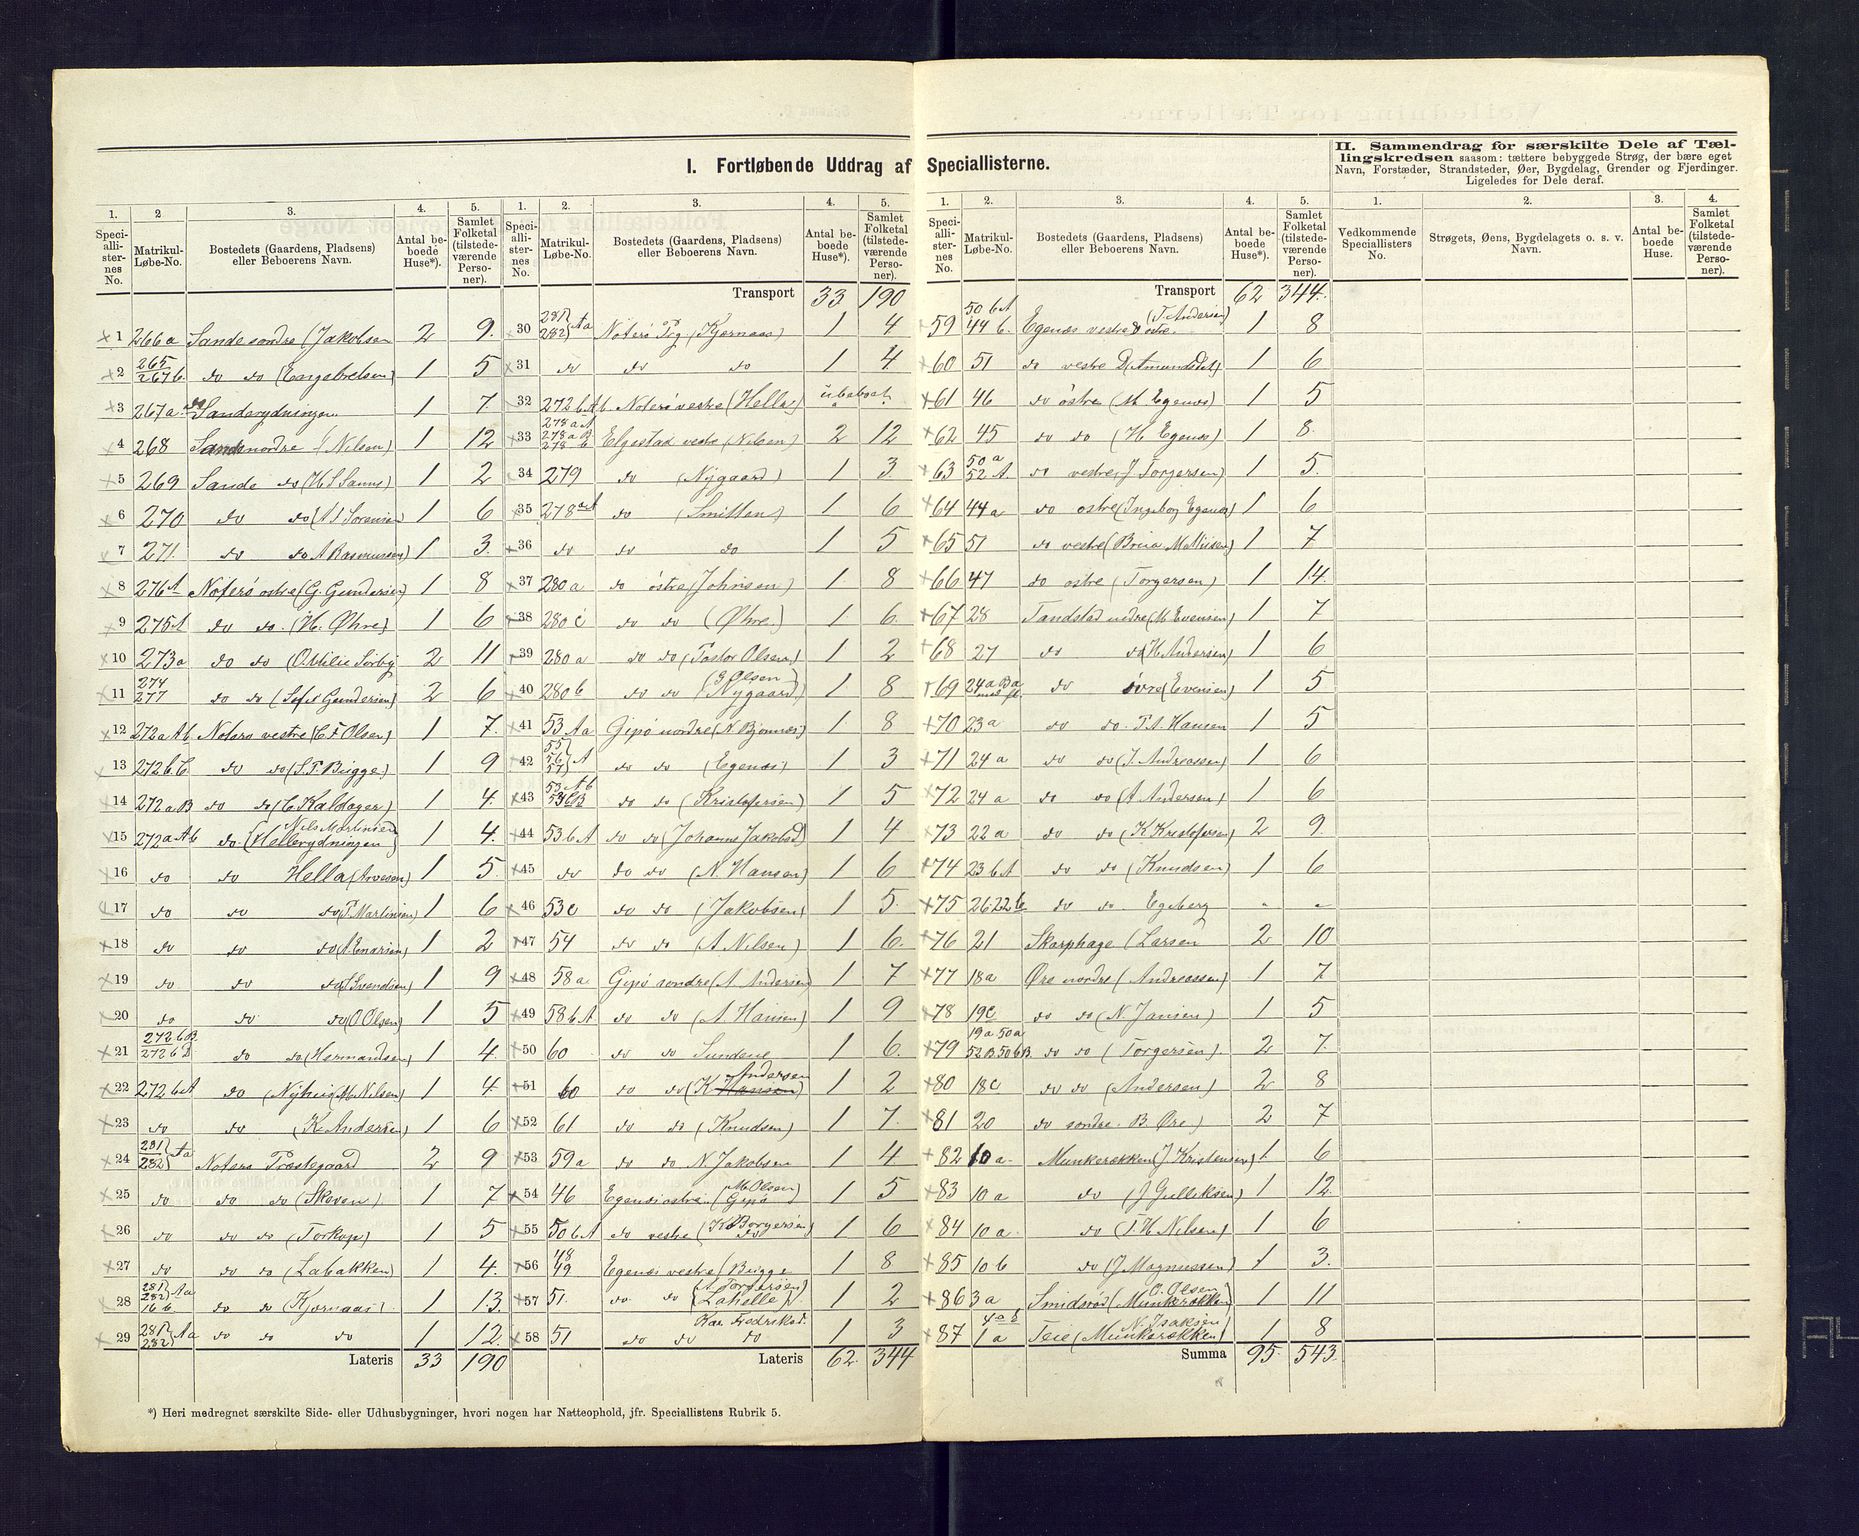 I. Fortløbende Uddrag af Speciallisterne.
II. Sammendrag for særskilte Dele af Tællingskredsen saasom: tættere bebyggede Strøg, der bære eget
Navn, Forstæder, Strandsteder, Øer, Bygdelag, Grender og Fjerdinger.
Ligeledes for Dele deraf.
1. 2 3. 4. 5.
Speciallisternes No. Matrikul-Løbe-No. Bostedets (Gaardens, Pladsens) eller Beboerens Navn. Antal beboede Huse*). Samlet Folketal (tilstedeværende Personer).
1 266a Sande søndre (Jakobsen 2 9.
2 265/267b. do do (Engebretsen) 1 5
3 267a. do Sanderydningen 1 7.
4 268 Sande nordre (Nilsen) 1 12
5 269 Sande do (H S Sanns) 1 2
6 270 do do (A S Sørensen 1 6
7 271. do do A Rasmussen) 1 3.
8 276A Noterø østre (G. Gundersen) 1 8
9 275A do do. (H. Øhre) 1 6
10 273a do do (Othilie Sørby 2 11
11 274 277 do do (Sofus Gundersen) 2 6
12 272a Ab Noterø vestre (C F Olsen) 1 7.
13 272b. C. do do (S. P. Bugge) 1 9
14 272a B do do (C Kaldager) 1 4.
15 272a Ab do. (Nils Martinsen Hellerydningen) 1 4.
16 do do Hella (Arvesen) 1 5.
17 do do do P. Martinsen) 1 6
18 do do do (A Enarsen) 1 2
19 do do do (S Svendsen) 1 9
20 do do do (O Olsen) 1 5
21 272b B. 272b D. do do (Hermandsen) 1 4.
22 272bA do (Nyhus M. Nilsen) 1 4.
23 do do (K. Andersen) 1 6
24 281/282 Aa Noterø Præstegaard 2 9
25 do do do (Skoven) 1 7
26 do do do (Torkop) 1 5
27 do do do (Labakken) 1 4.
28 281/282 Aa 16b. do do (Kjernaas). 1 13.
29 281/282 Aa do do do 1 12.
Lateris 33 190
1. 2. 3. 4. 5.
Speciallisternes No. Matrikul-Løbe-No. Bostedets (Gaardens, Pladsens) eller Beboerens Navn. Antal beboede Huse*). Samlet Folketal (tilstedeværende Personer).
Transport 33 190
30 281/282 Aa Noterø Pg. (Kjernaas) 1 4
31 do do do 1 4
32 272bAb. Noterø vestre (Hella) ubeboet
33 278aA 278aB 278b Elgestad vestre (Nilsen) 2 12
34 279 do (Nygaard) 1 3.
35 278aA do (Smitten) 1 6
36 do do do 1 5
37 280a do østre (Johnsen) 1. 8
38 280c do do (Øhre) 1 6.
39 280a do do (Pastor Olsen) 1 2
40 280b do do (J Olsen Nygaard) 1 8
41 53 Aa Gipø nordre (N. Bjønnes) 1. 8
42 55 56 57 A do do (Egenæs) 1 3
43 53 Ab 53bB do do (Kristofersen) 1 5
44 53bA do do (Johanne Jakobsd) 1 4
45 do do do (N. Hansen) 1 6
46 53c do do (Jakobsen) 1 5.
47 54 do do (A Nilsen) 1 6.
48 58a Gipø søndre (A. Andersen) 1 7
49 58bA do do (A. Hansen) 1 9
50 60. do do Sundene 1 6.
51 60 do do (K. Andersen) 1 2
52 61 do do (Knudsen) 1 7.
53 59a do do N. Jakobsen 1 4
54 46 Egenæs østre (M. Olsen Gipø) 1 5
55 50bA do vestre (K. Borgersen do) 1 6
56 48 49 Egenæs vestre (Bugge 1 8
57 51. do do (A Torgersen Lahelle) 1 2
58 51 do do do 1 3
Lateris 62. 344
1. 2. 3. 4. 5.
Speciallisternes No. Matrikul-Løbe-No. Bostedets (Gaardens, Pladsens) eller Beboerens Navn. Antal beboede Huse*). Samlet Folketal (tilstedeværende Personer).
Transport 62 344.
59 50bA 44b. Egenæs vestre & østre (T. Andersen) 1 8
60 51 do vestre D (Amundsdt) 1 6
61 46 do østre (M. Egenæs) 1 5
62 45 do do (H. Egenæs) 1 8.
63 50a 52.A. do vestre (J Torgersen) 1 5.
64 44a do østre (Ingebor Egenæs) 1 6
65 51 do vestre 1 7
66 47 do østre (Torgersen) 1 14.
67 28 Tandstad nedre (M Evensen) 1 7
68 27 do do (H Andersen) 1 6
69 24a do øvre (Evensen) 1 5
70 23a do do. P. A. Hansen 1 5
71 24a do do (J. Andreassen) 1 6
72 24a do do (A Andersen) 1 6
73 22a do do (K. Kristofersen) 2 9.
74 23bA do do (Knudsen) 1 6
75 26 22b do do. Egeberg - -
76 21 Skarphage (Larsen 2 10
77 18a Øre nordre (Andreassen) 1 7
78 19c do do (N. Jansen) 1 5
79 19a 50a 52B 50bB. do do (Torgersen). 2 7.
80 18c do do (Andersen) 2 8
81 20 do søndre. B. Øre) 2 7
82 10a. Munkerækken (J. Kristensen) 1 6
83 10a do (J Gulliksen) 1 12.
84 10a do (T. H. Nilsen) 1 6
85 10b do (J Magnussen) 1 3.
86 3a Smidsrød (O. Olsen Munkerækken) 1 11
87 1a Teie (N. Isaksen Munkerækken) 1 8
Summa 95. 543.
1. 2. 3. 4.
Vedkommende Speciallisters No. Strøgets, Øens, Bygdelagets o. s. v. Navn. Antal beboede Huse. Samlet Folketal (tilstedeværende Personer).
*) Heri medregnet særskilte Side- eller Udhusbygninger, hvori nogen har Natteophold, jfr. Speciallistens Rubrik 5.